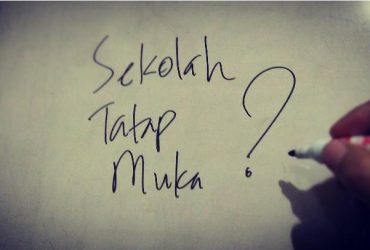 Sekolah
Tatap
Muka ?